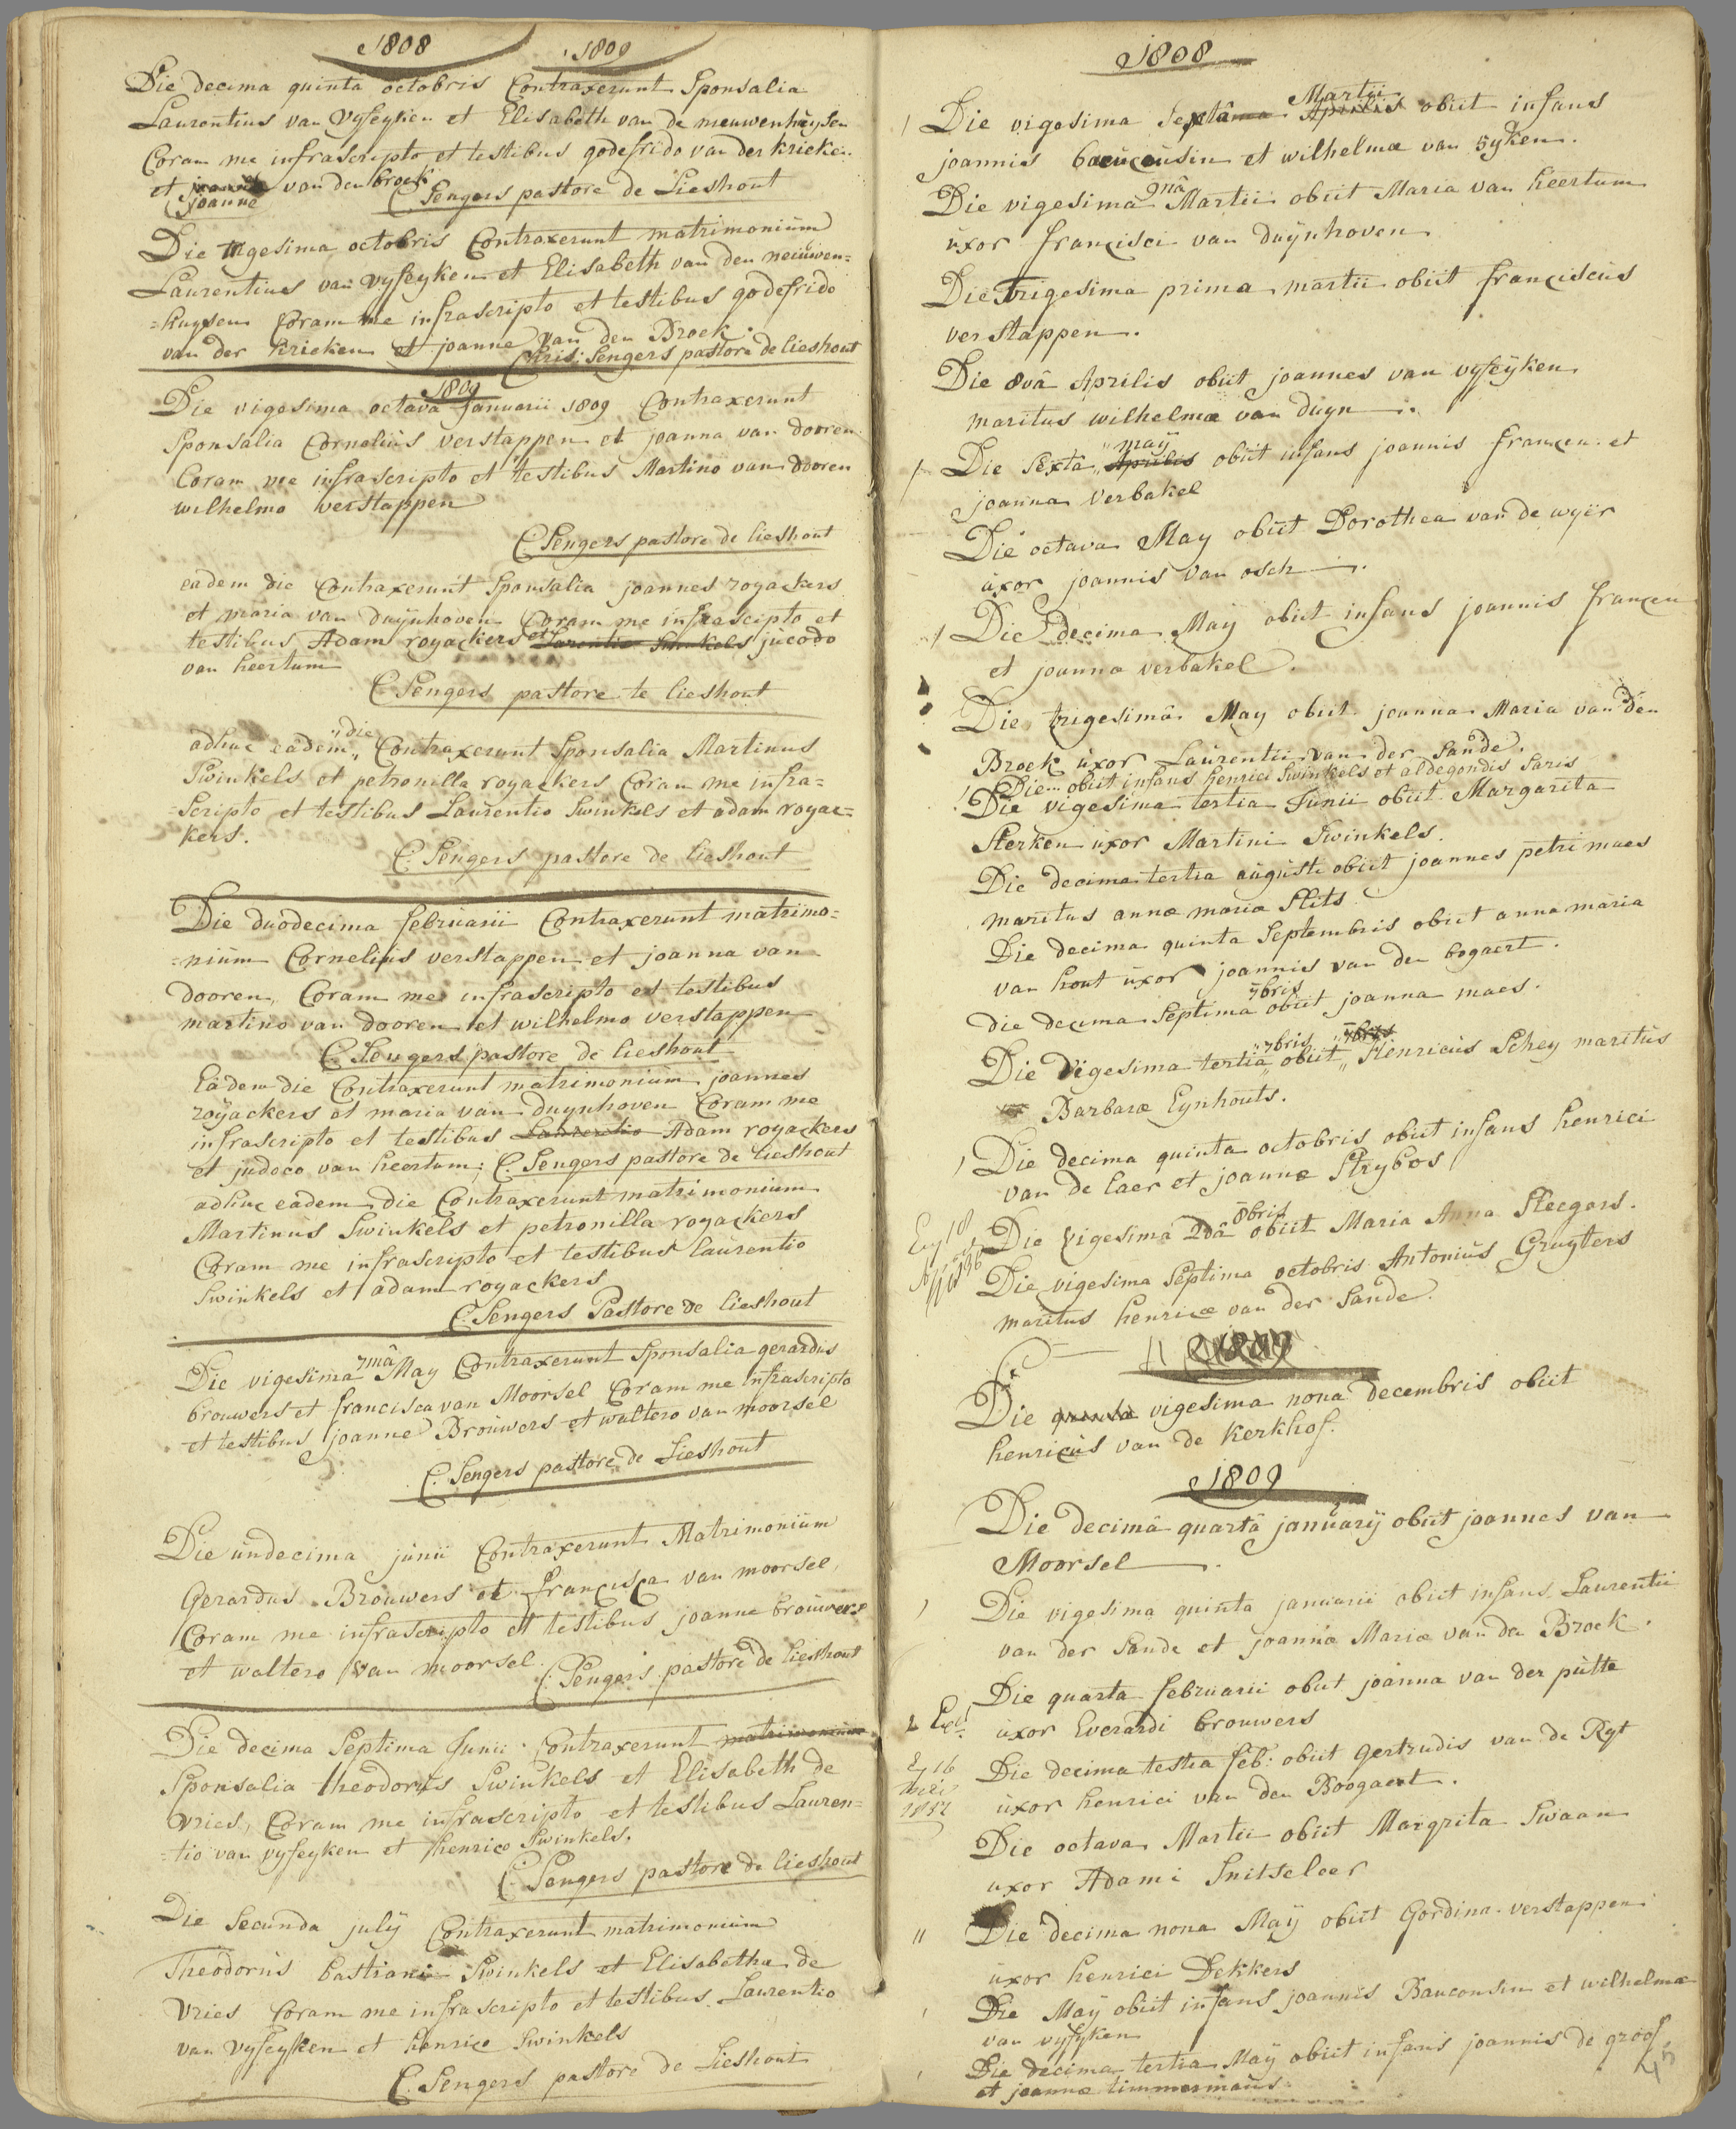 1808 1809
Die decima quinta octobris Contraxerunt Sponsalia
Laurentius van Vyfeyken et Elisabeth van de nieuwenhuysen
Coram me infrascripto et testibus godefrido van der kricken
et joanne van den broek
joanne C. Sengers pastore de Lieshout
Die trigesima octobris Contraxerunt matrimonium
Laurentius van vyfeyken et Elisabeth van den neiuwen=
=huysen Coram me infrascripto et testibus godefrido
van der kricken et joanne van den Broek.
Chris: Sengers pastore de lieshout
1809
Die vigesima octava Januarii 1809 Contraxerunt
Sponsalia Cornelius verstappen et joanna van dooren
Coram me infrascripto et testibus Martino van dooren
wilhelmo verstappen
C Sengers pastore de lieshout
eadem die Contraxerunt Sponsalia joannes royackers
et maria van duynhoven Coram me infrascipto et
testibus Adam royackers et Larentio Swinkels jucodo
van heertum
C Sengers pastore te lieshout
die
adhuc eadem Contraxerunt Sponsalia Martinus
Swinkels et petronilla royackers Coram me infra=
=Scripto et testibus Laurentio Swinkels et adam royac=
kers.
C. Sengers pastore de lieshout
Die duodecima februarii Contraxerunt matrimo=
=nium Cornelius verstappen et joanna van
dooren, Coram me infrascripto et testibus
martino van dooren et wilhelmo verstappen
C. Sengers pastore de lieshout
Eadem die Contraxerunt matrimonium joannes
royackers et maria van duynhoven Coram me
infrascripto et testibus Laurentio Adam royackers
et judoco van heertum; C. Sengers pastore de lieshout
adhuc eadem die Contraxerunt matrimonium
Martinus Swinkels et petronilla royackers
Coram me infrascripto et testibus laurentio
Swinkels et adam royackers
C. Sengers Pastore de lieshout
Die vigesima 7mâ May Contraxerunt Sponsalia gerardus
brouwers et francisca van Moorsel Coram me infrascripto
et testibus joanne Brouwers et waltero van moorsel
C. Sengers pastore de Lieshout
Die undecima junii Contraxerunt Matrimonium
Gerardus Brouwers et francisca van moorsel,
Coram me infrascripto et testibus joanne brouwers
et waltero van moorsel. C. Sengers pastore de lieshout
Die decima Septima Junii Contraxerunt matrimonium
Sponsalia theodorus Swinkels et Elisabeth de
Vries, Coram me infrascripto et testibus Lauren=
=tio van vyfeyken et henrico Swinkels.
C. Sengers pastore de lieshout
Die Secunda july Contraxerunt matrimonium
Theodorus bastiani Swinkels et Elisabetha de
Vries Coram me infrascripto et testibus Laurentio
van vyfeyken et henrico Swinkels
C. Sengers pastore de Lieshout
1808
Martii
Die vigesima Sextâ Aprilis obiit infans
joannis et wilhelmæ van 5yken.
Die vigesimâ 9nâ Martii obiit Maria van heertum
uxor francisci van duynhoven
Die Trigesima prima martii obiit franciscus
verstappen.
Die 8vâ Aprilis obiit joannes van vyfeyken
maritus wilhelmæ van duyn
may
Die Sexta Aprilis obiit infans joannis francen et
joanna Verbakel
Die octava May obiit Dorothea van de wyer
uxor joannis van osch
Die decima May obiit infans joannis francen
et joannæ verbakel.
Die trigesimâ May obiit joanna Maria van den
Broek uxor Laurentii van der Sande.
Die... obiit infans henrici Swinkels et aldegondis Saris
Die vigesima tertia Junii obiit Margarita
Sterken uxor Martini Swinkels.
Die decima tertia augusti obiit joannes petri maes
maritus annæ mariæ Slits
Die decima quinta Septembris obiit anna maria
van hout uxor joannis van den bogaert.
7bris
die decima Septima obiit joanna maes.
7bris 7bris
Die vigesima tertia obiit Henricus Schey maritus
Barbaræ Eynhouts.
Die decima quinta octobris obiit infans henrici
van de laer et joannæ Strybos
8bris
Die vigesima 2dâ obiit Maria Anna Steegers.
Die vigesima Septima octobris Antonius Gruyters
maritus henricæ van der Sande.
1809
Die quinta vigesima nona decembris obiit
henricus van de Kerkhof.
1809
Die decimâ quartâ januarij obiit joannes van
Moorsel
Die vigesima quinta januarii obiit infans Laurentii
van der Sande et joannæ Mariæ van den Broek.
Die quarta februarii obiit joanna van der putte
uxor Everardi brouwers
Die decima tertia feb: obiit gertrudis van de Ryt
uxor henrici van den Boogaert.
Die octava Martii obiit Margrita Swaan
uxor Adami Snitseleer
Die decima nona Maÿ obiit Gordina verstappen
uxor henrici Dekkers
Die Maÿ obiit infans joannis Bauconsin et wilhelmæ
van vyfyken
Die decima tertia Maÿ obiit infans joannis de groof
et joannæ timmermans
45